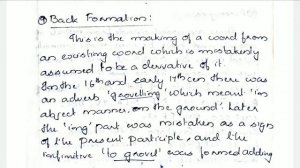 Back Formation:
This is the making of a word from
an existing word which is mistakenly
assumed to be a derivative of it.
In the 16th and early 17th cen there was
an adverb 'grovelling' which meant 'in
abject manner, on the ground' Later
the 'ing' part was mistaken as a sign
of the present participle, and the
infinitive 'to grovel' was formed adding